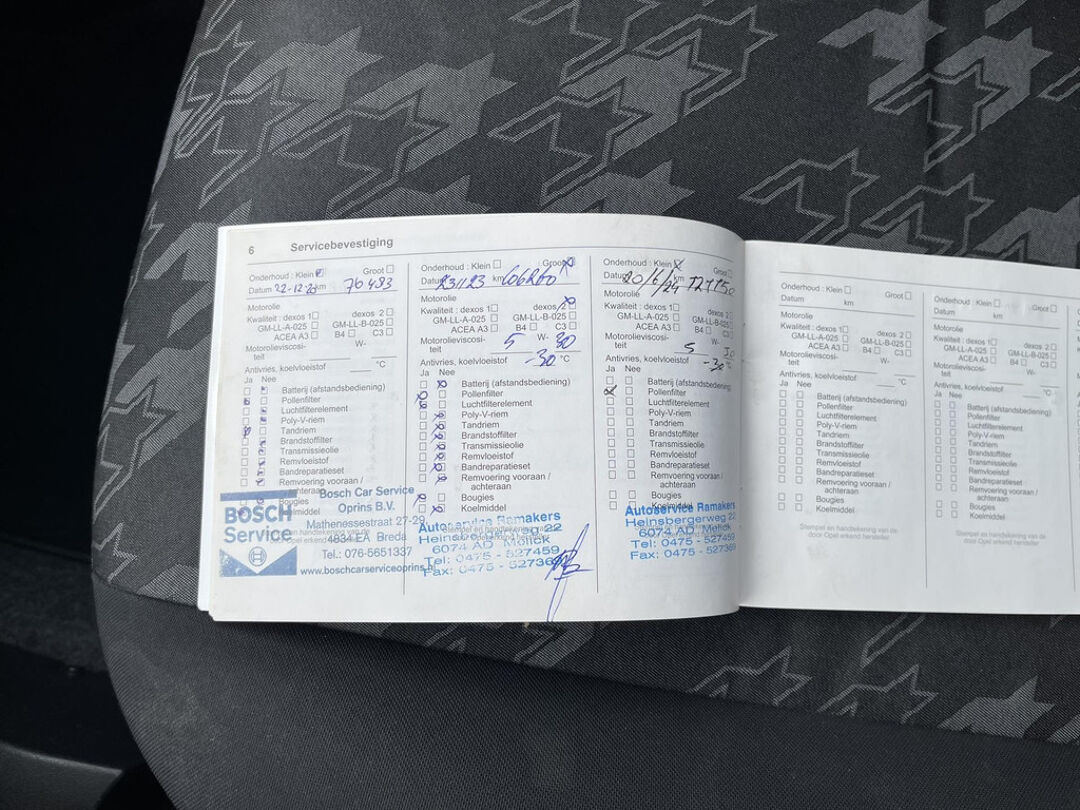 6 Servicebevestiging
Onderhoud : Klein Groot
Datum 22-12-20 km 76493
Motorolie
Kwaliteit : dexos 1 dexos 2
GM-LL-A-025 GM-LL-B-025
ACEA A3 B4 C3
Motorolieviscosi- W-
teit
Antivries, koelvloeistof °C
Ja Nee
Batterij (afstandsbediening)
Pollenfilter
Luchtfilterelement
Poly-V-riem
Tandriem
Brandstoffilter
Transmissieolie
Remvloeistof
Bandreparatieset
Remvoering vooraan /
achteraan
Bougies
Koelmiddel
BOSCH
Service
Bosch Car Service
Oprins B.V.
Mathenessestraat 27-29
4834 EA Breda
Tel.: 076-5651337
www.boschcarserviceoprins.nl
Onderhoud : Klein Groot
Datum km
Motorolie
Kwaliteit : dexos 1 dexos
GM-LL-A-025 GM-LL-B-025
ACEA A3 B4 C3
Motorolieviscosi- 5 W- 30
teit
Antivries, koelvloeistof -30 °C
Ja Nee
Batterij (afstandsbediening)
Pollenfilter
Luchtfilterelement
Poly-V-riem
Tandriem
Brandstoffilter
Transmissieolie
Remvloeistof
Bandreparatieset
Remvoering vooraan /
achteraan
Bougies
Koelmiddel
Autoservice Ramakers
Heinsbergerweg 22
6074 AD Melick
Tel: 0475 - 527459
Fax: 0475 - 527362
Onderhoud : Klein Groot
Datum 20/6/24
Motorolie
Kwaliteit : dexos 1 dexos 2
GM-LL-A-025 GM-LL-B-025
ACEA A3 B4 C3
Motorolieviscosi- 5 W- 30
teit
Antivries, koelvloeistof -30 °C
Ja Nee
Batterij (afstandsbediening)
Pollenfilter
Luchtfilterelement
Poly-V-riem
Tandriem
Brandstoffilter
Transmissieolie
Remvloeistof
Bandreparatieset
Remvoering vooraan /
achteraan
Bougies
Koelmiddel
Autoservice Ramakers
Heinsbergerweg 22
6074 AD Melick
Tel: 0475 - 527459
Fax: 0475 - 527362
Onderhoud : Klein Groot
Datum km
Motorolie
Kwaliteit : dexos 1 dexos 2
GM-LL-A-025 GM-LL-B-025
ACEA A3 B4 C3
Motorolieviscosi- W-
teit
Antivries, koelvloeistof °C
Ja Nee
Batterij (afstandsbediening)
Pollenfilter
Luchtfilterelement
Poly-V-riem
Tandriem
Brandstoffilter
Transmissieolie
Remvloeistof
Bandreparatieset
Remvoering vooraan /
achteraan
Bougies
Koelmiddel
Stempel en handtekening van de
door Opel erkend hersteller
Onderhoud : Klein Groot
Datum km
Motorolie
Kwaliteit : dexos 1 dexos 2
GM-LL-A-025 GM-LL-B-025
ACEA A3 B4 C3
Motorolieviscosi- W-
teit
Antivries, koelvloeistof °C
Ja Nee
Batterij (afstandsbediening)
Pollenfilter
Luchtfilterelement
Poly-V-riem
Tandriem
Brandstoffilter
Transmissieolie
Remvloeistof
Bandreparatieset
Remvoering vooraan /
achteraan
Bougies
Koelmiddel
Stempel en handtekening van de
door Opel erkend hersteller